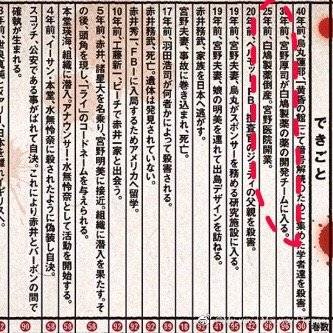 できごと
巻数
40年前、烏丸蓮耶、「黄昏の館」にて暗号解読のために集めた学者達を殺害。
30
年前、宮野厚司が白鳩製薬の薬の開発チームに入る。
年前、白鳩製薬倒産。宮野医院開業。
20年前、ベルモット、FBI捜査官のジョディの父親を殺害。
19年前、宮野夫妻、烏丸がスポンサーを務める研究施設に入る。
19年前、宮野夫妻、娘の明美を連れて出島デザインを訪ねる。
赤井務武、家族を日本へ逃がす。
宮野夫妻、事故に巻き込まれ、死亡。
17年前、羽田浩司が何者かによって殺害される。
赤井務武、死亡？遺体は発見されていない。
赤井秀一、FBIに入局するためアメリカへ留学。
10年前、工藤新一、ビーチで赤井一家と出会う。
92
5年前、赤井、諸星大を名乗り、宮野明美に接近。組織に潜入を果たす。そ
の後、頭角を現し、「ライ」のコードネームを与えられる。
58
本堂瑛海、組織に潜入。アナウンサー水無怜奈として活動を開始する。
58
4年前、イーサン・本堂、水無怜奈に殺されたように偽装し自決。
58
スコッチ、公安である事がばれて自決。これにより赤井とバーボンの間で
確執が生まれる。
90